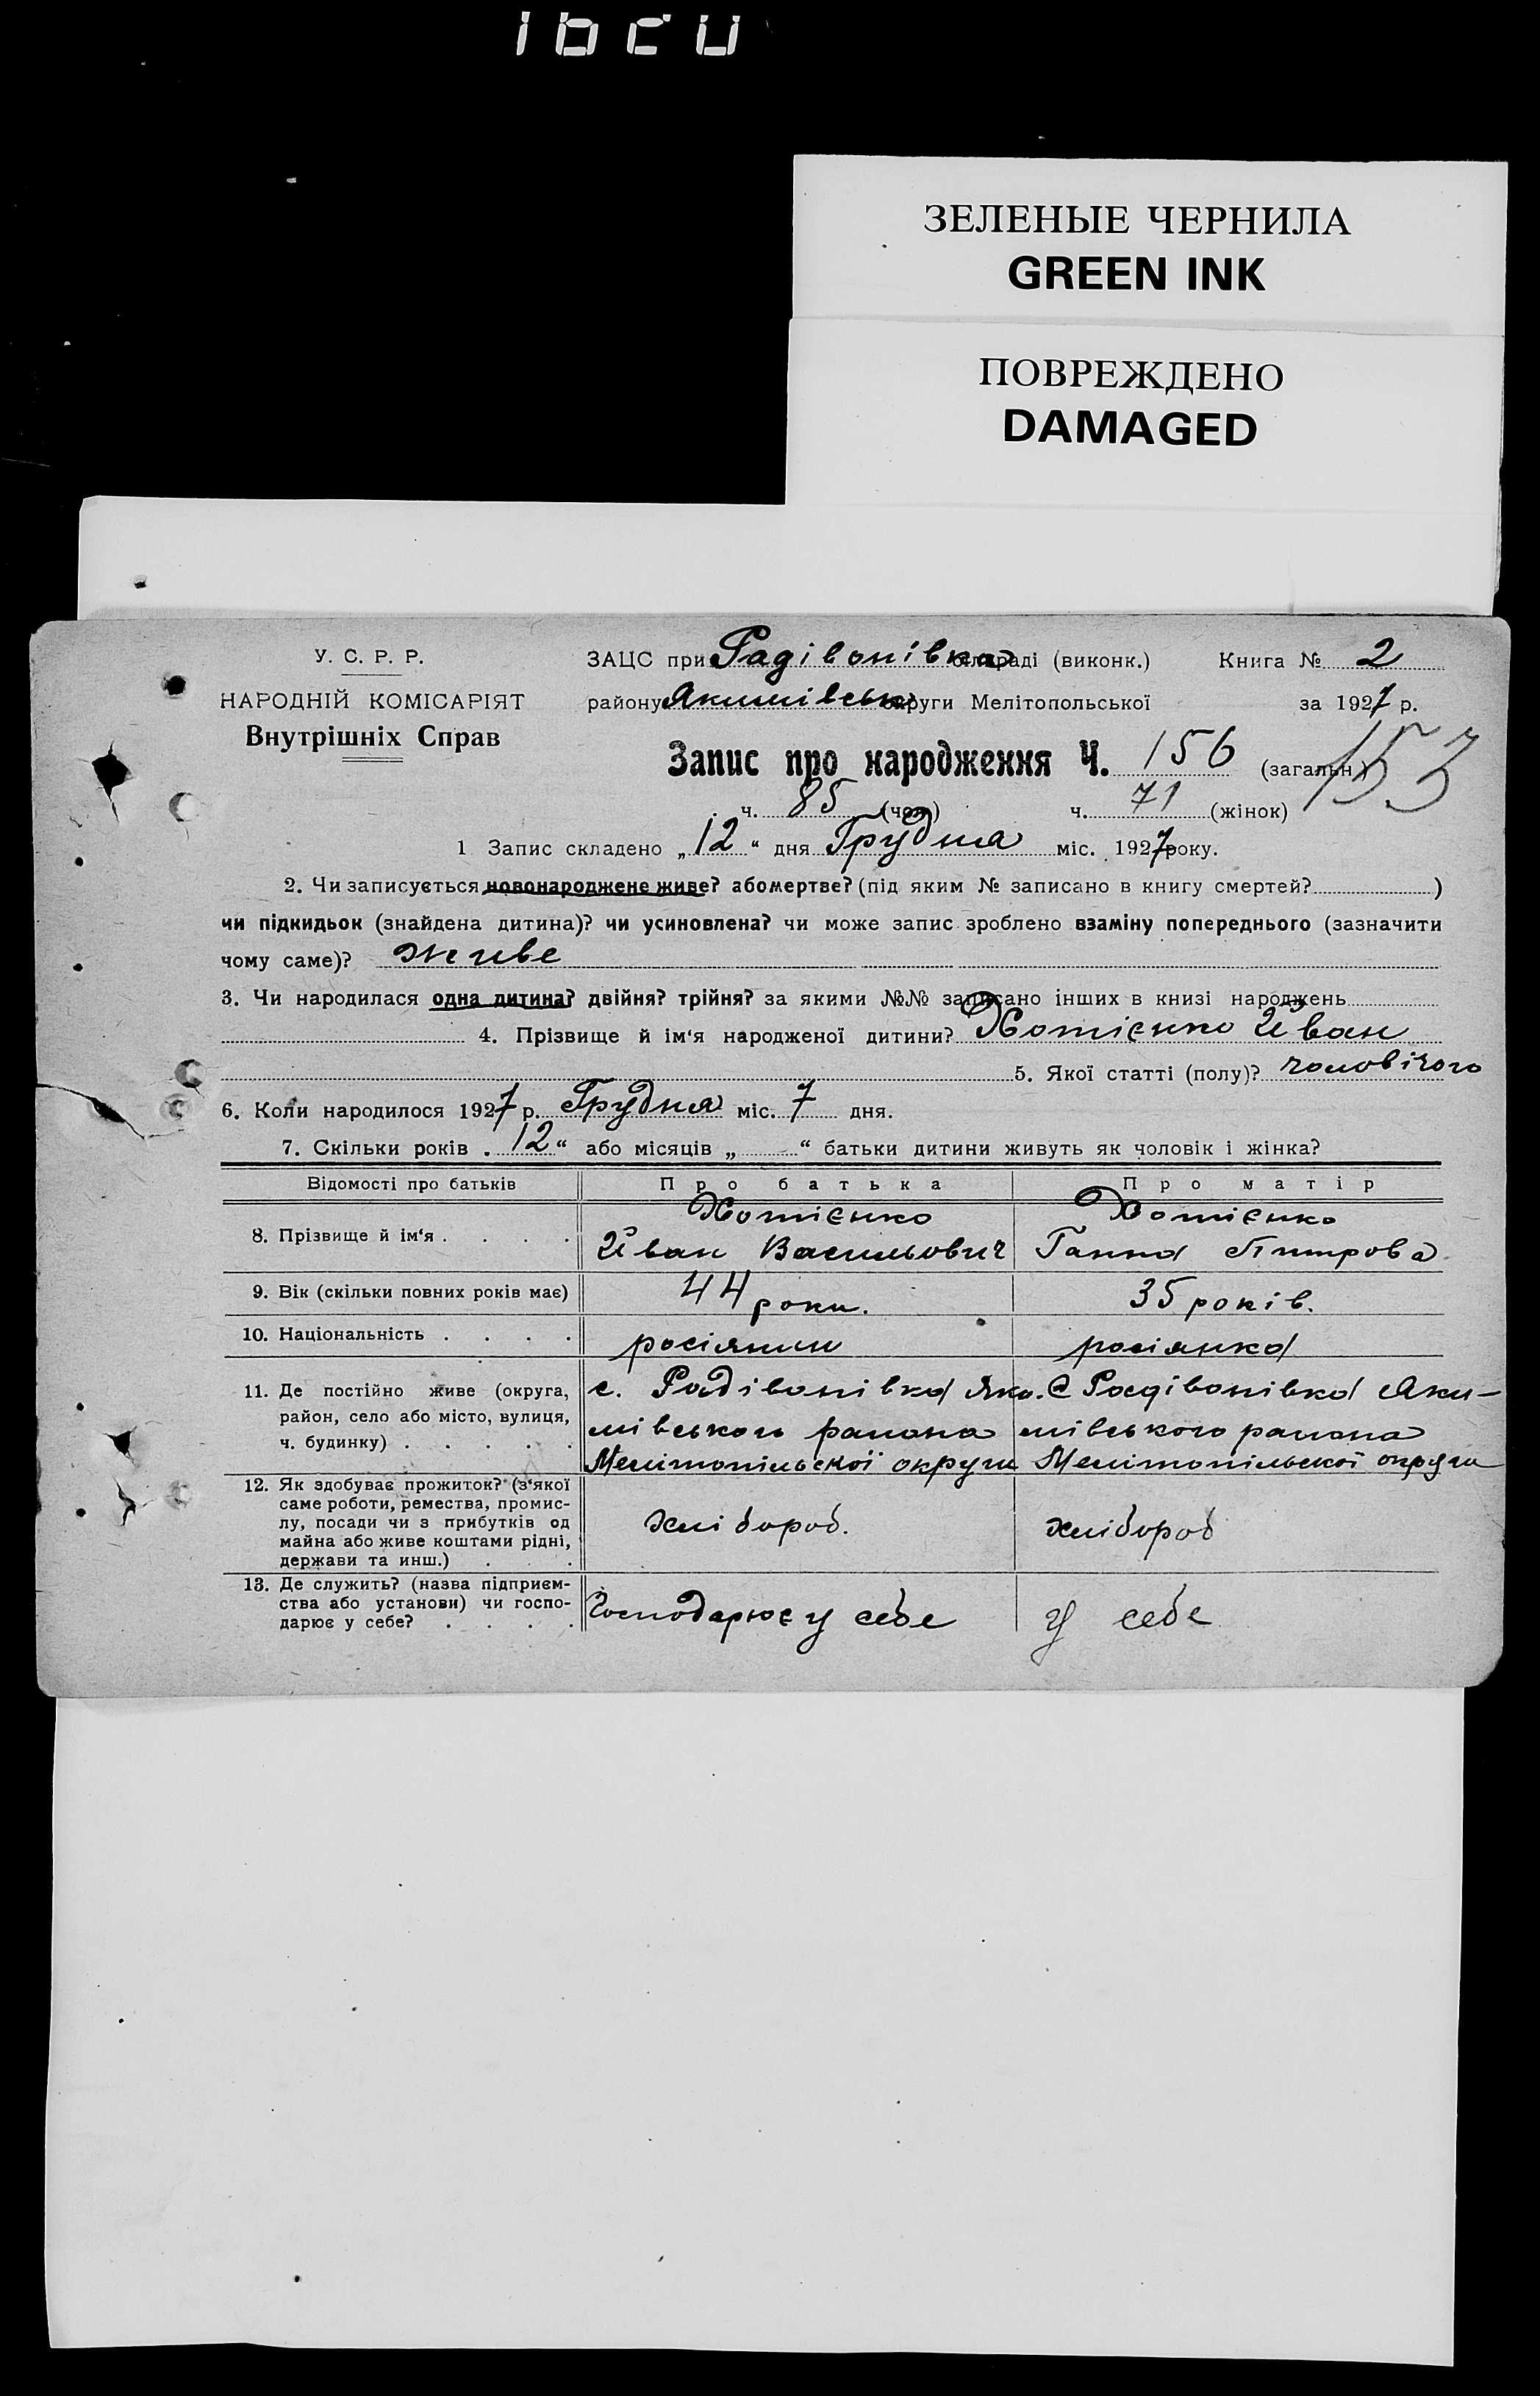 ЗЕЛЕНЫЕ ЧЕРНИЛА
GREEN INK
ПОВРЕЖДЕНО
DAMAGED
У. С. Р. Р.
НАРОДНІЙ КОМІСАРІЯТ
Внутрішніх Справ
ЗАЦС при Радівонівка сільраді (виконк.) Книга № 2
району Якимівськ округи Мелітопольської за 1927 р.
Запис про народження Ч. 156 (загальн.) 153
ч. 85 (чол) ч. 71 (жінок)
1 Запис складено „12“ дня Грудня міс. 1927 року.
2. Чи записується новонароджене живе? або мертве? (під яким № записано в книгу смертей? )
чи підкидьок (знайдена дитина)? чи усиновлена? чи може запис зроблено взаміну попереднього (зазначити
чому саме)? живе
3. Чи народилася одна дитина? двійня? трійня? за якими №№ записано інших в книзі народжень
4. Прізвище й ім'я народженої дитини? Хотієнко Йван
5. Якої статті (полу)? чоловічого
6. Коли народилося 1927 р. Грудня міс. 7 дня.
7. Скільки років „12“ або місяців „ “ батьки дитини живуть як чоловік і жінка?
Відомості про батьків Про батька Про матір
8. Прізвище й ім'я . . . . Хотієнко Йван Васильович Хотієнко Ганна Питрова
9. Вік (скільки повних років має) 44 роки. 35 років.
10. Національність . . . . росіянин росіянка
11. Де постійно живе (округа, с. Радівонівка Яки- С Радівонівка Яки-
район, село або місто, вулиця, мівського района мівського района
ч. будинку) . . . . . Мелітопільської округи Мелітопільської округи
12. Як здобуває прожиток? (з'якої
саме роботи, ремества, промис-
лу, посади чи з прибутків од хлібороб. хлібороб
майна або живе коштами рідні,
держави та инш.) . .
13. Де служить? (назва підприєм-
ства або установи) чи госпо- Господарює у себе у себе
дарює у себе? . . . .